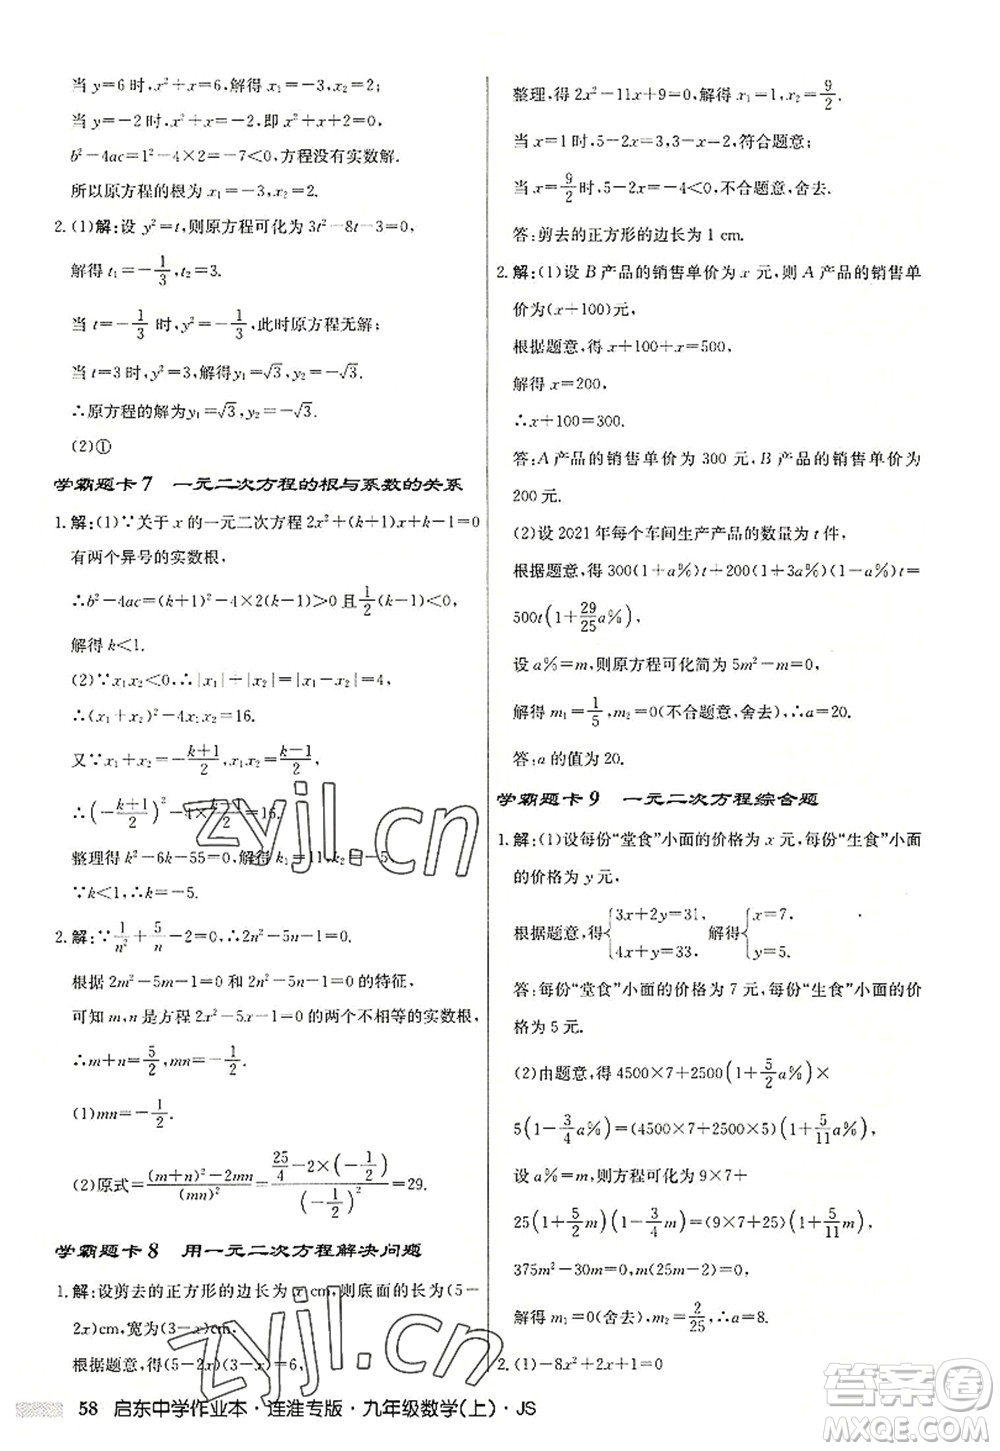 当 y=6 时,x²+x=6,解得 x₁=-3,x₂=2;
当 y=-2 时,x²+x=-2,即 x²+x+2=0,
b²-4ac=1²-4×2=-7<0,方程没有实数解.
所以原方程的根为 x₁=-3,x₂=2.
2.(1)解:设 y²=t,则原方程可化为 3t²-8t-3=0,
解得 t₁=-1/3,t₂=3.
当 t=-1/3 时,y²=-1/3,此时原方程无解;
当 t=3 时,y²=3,解得 y₁=√3,y₂=-√3.
∴原方程的解为 y₁=√3,y₂=-√3.
(2)①
学霸题卡 7 一元二次方程的根与系数的关系
1.解:(1)∵关于 x 的一元二次方程 2x²+(k+1)x+k-1=0
有两个异号的实数根,
∴b²-4ac=(k+1)²-4×2(k-1)>0 且 1/2(k-1)<0,
解得 k<1.
(2)∵x₁x₂<0,∴|x₁|+|x₂|=|x₁-x₂|=4,
∴(x₁+x₂)²-4x₁x₂=16.
又∵x₁+x₂=-(k+1)/2,x₁x₂=(k-1)/2,
∴(-(k+1)/2)²-4×(k-1)/2=16.
整理得 k²-6k-55=0,解得 k₁=11,k₂=-5.
∵k<1,∴k=-5.
2.解:∵1/n²+5/n-2=0,∴2n²-5n-1=0.
根据 2m²-5m-1=0 和 2n²-5n-1=0 的特征,
可知 m,n 是方程 2x²-5x-1=0 的两个不相等的实数根,
∴m+n=5/2,mn=-1/2.
(1)mn=-1/2.
(2)原式=((m+n)²-2mn)/(mn)²=(25/4-2×(-1/2))/(-1/2)²=29.
学霸题卡 8 用一元二次方程解决问题
1.解:设剪去的正方形的边长为 x cm,则底面的长为(5-
2x)cm,宽为(3-x)cm.
根据题意,得(5-2x)(3-x)=6,
整理,得 2x²-11x+9=0,解得 x₁=1,x₂=9/2.
当 x=1 时,5-2x=3,3-x=2,符合题意;
当 x=9/2 时,5-2x=-4<0,不符合题意,舍去.
答:剪去的正方形的边长为 1 cm.
2.解:(1)设 B 产品的销售单价为 x 元,则 A 产品的销售单
价为(x+100)元,
根据题意,得 x+100+x=500,
解得 x=200.
∴x+100=300.
答:A 产品的销售单价为 300 元,B 产品的销售单价为
200 元.
(2)设 2021 年每个车间生产产品的数量为 t 件,
根据题意,得 300(1+a%)t+200(1+3a%)(1-a%)t=
500t(1+29/25a%),
设 a%=m,则原方程可化简为 5m²-m=0,
解得 m₁=1/5,m₂=0(不合题意,舍去),∴a=20.
答:a 的值为 20.
学霸题卡 9 一元二次方程综合题
1.解:(1)设每份“堂食”小面的价格为 x 元,每份“生食”小面
的价格为 y 元,
根据题意,得{3x+2y=31,4x+y=33.解得{x=7,y=5.
答:每份“堂食”小面的价格为 7 元,每份“生食”小面的价格
为 5 元.
(2)由题意,得 4500×7+2500(1+5/2a%)×
5(1-3/4a%)=(4500×7+2500×5)(1+5/11a%),
设 a%=m,则方程可化为 9×7+
25(1+5/2m)(1-3/4m)=(9×7+25)(1+5/11m),
375m²-30m=0,
解得 m₁=0(舍去),m₂=2/25,∴a=8.
2.(1)-8x²+32x+1800
58 启东中学作业本·连淮专版·九年级数学(上)·JS
zyjl.cn
zyjl.cn
答案圈
MXQE.COM